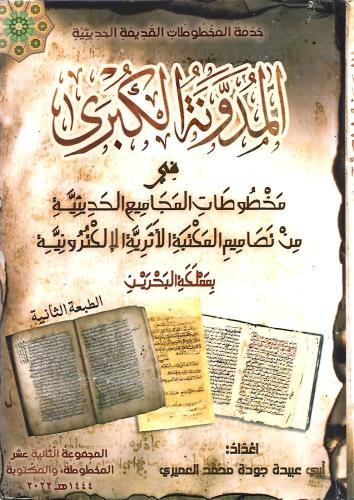 خدمة المخطوطات القديمة الحديثية
المُدوَّنةُ الكُبرى
في
مخطوطات المجاميع الحديثية
من تصاميم المكتبة الأثرية الإلكترونية
بمملكة البحرين
الطبعة الثانية
إعداد:
أبي عبيدة جودة محمد العميري
المجموعة الثانية عشر
المخطوطة، والمكتوبة
١٤٤٤هـ ٢٠٢٢